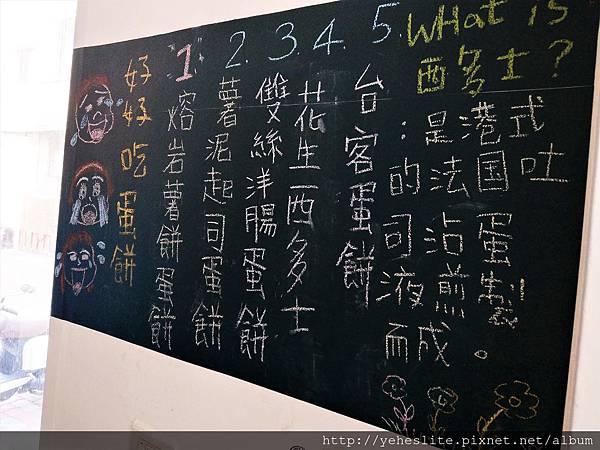 好好吃蛋餅
1. 熔岩薯餅蛋餅
2. 薯泥起司蛋餅
3. 雙絲洋腸蛋餅
4. 花生西多士
5. 台客蛋餅
WHat is
西多士?
：是港式
的法国吐
司沾蛋
液煎製
而成。
http://yeheslite.pixnet.net/album